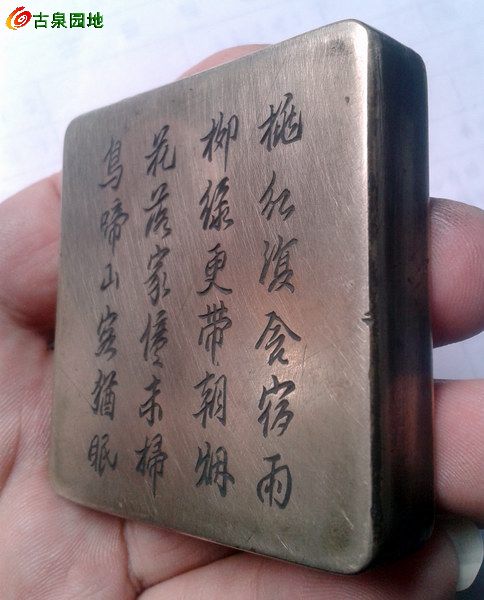 古泉园地
桃红復含宿雨
柳绿更带朝烟
花落家僮未掃
鳥啼山客猶眠